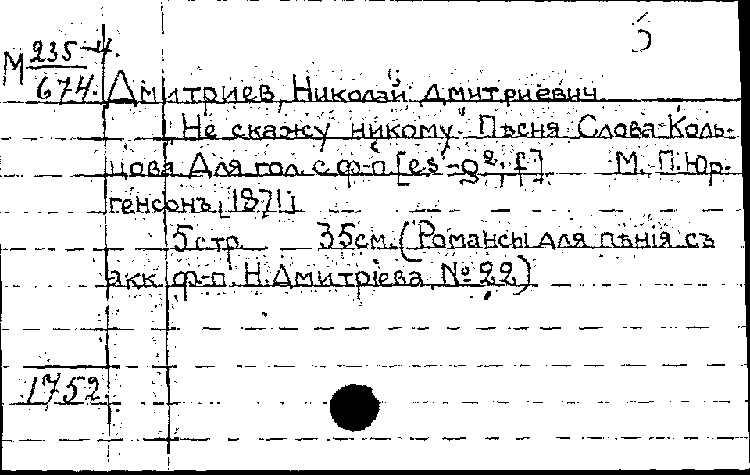 М 235-4.
674. Дмитриев, Николай Дмитриевич
Не скажу никому. Пѣсня Слова Коль-
цова Для гол. с ф-п [es'-g², f] М. П. Юр-
генсонъ, [1871]
5 стр. 35 см. (Романсы для пѣнія съ
акк ф-п. Н. Дмитріева № 22)
1752